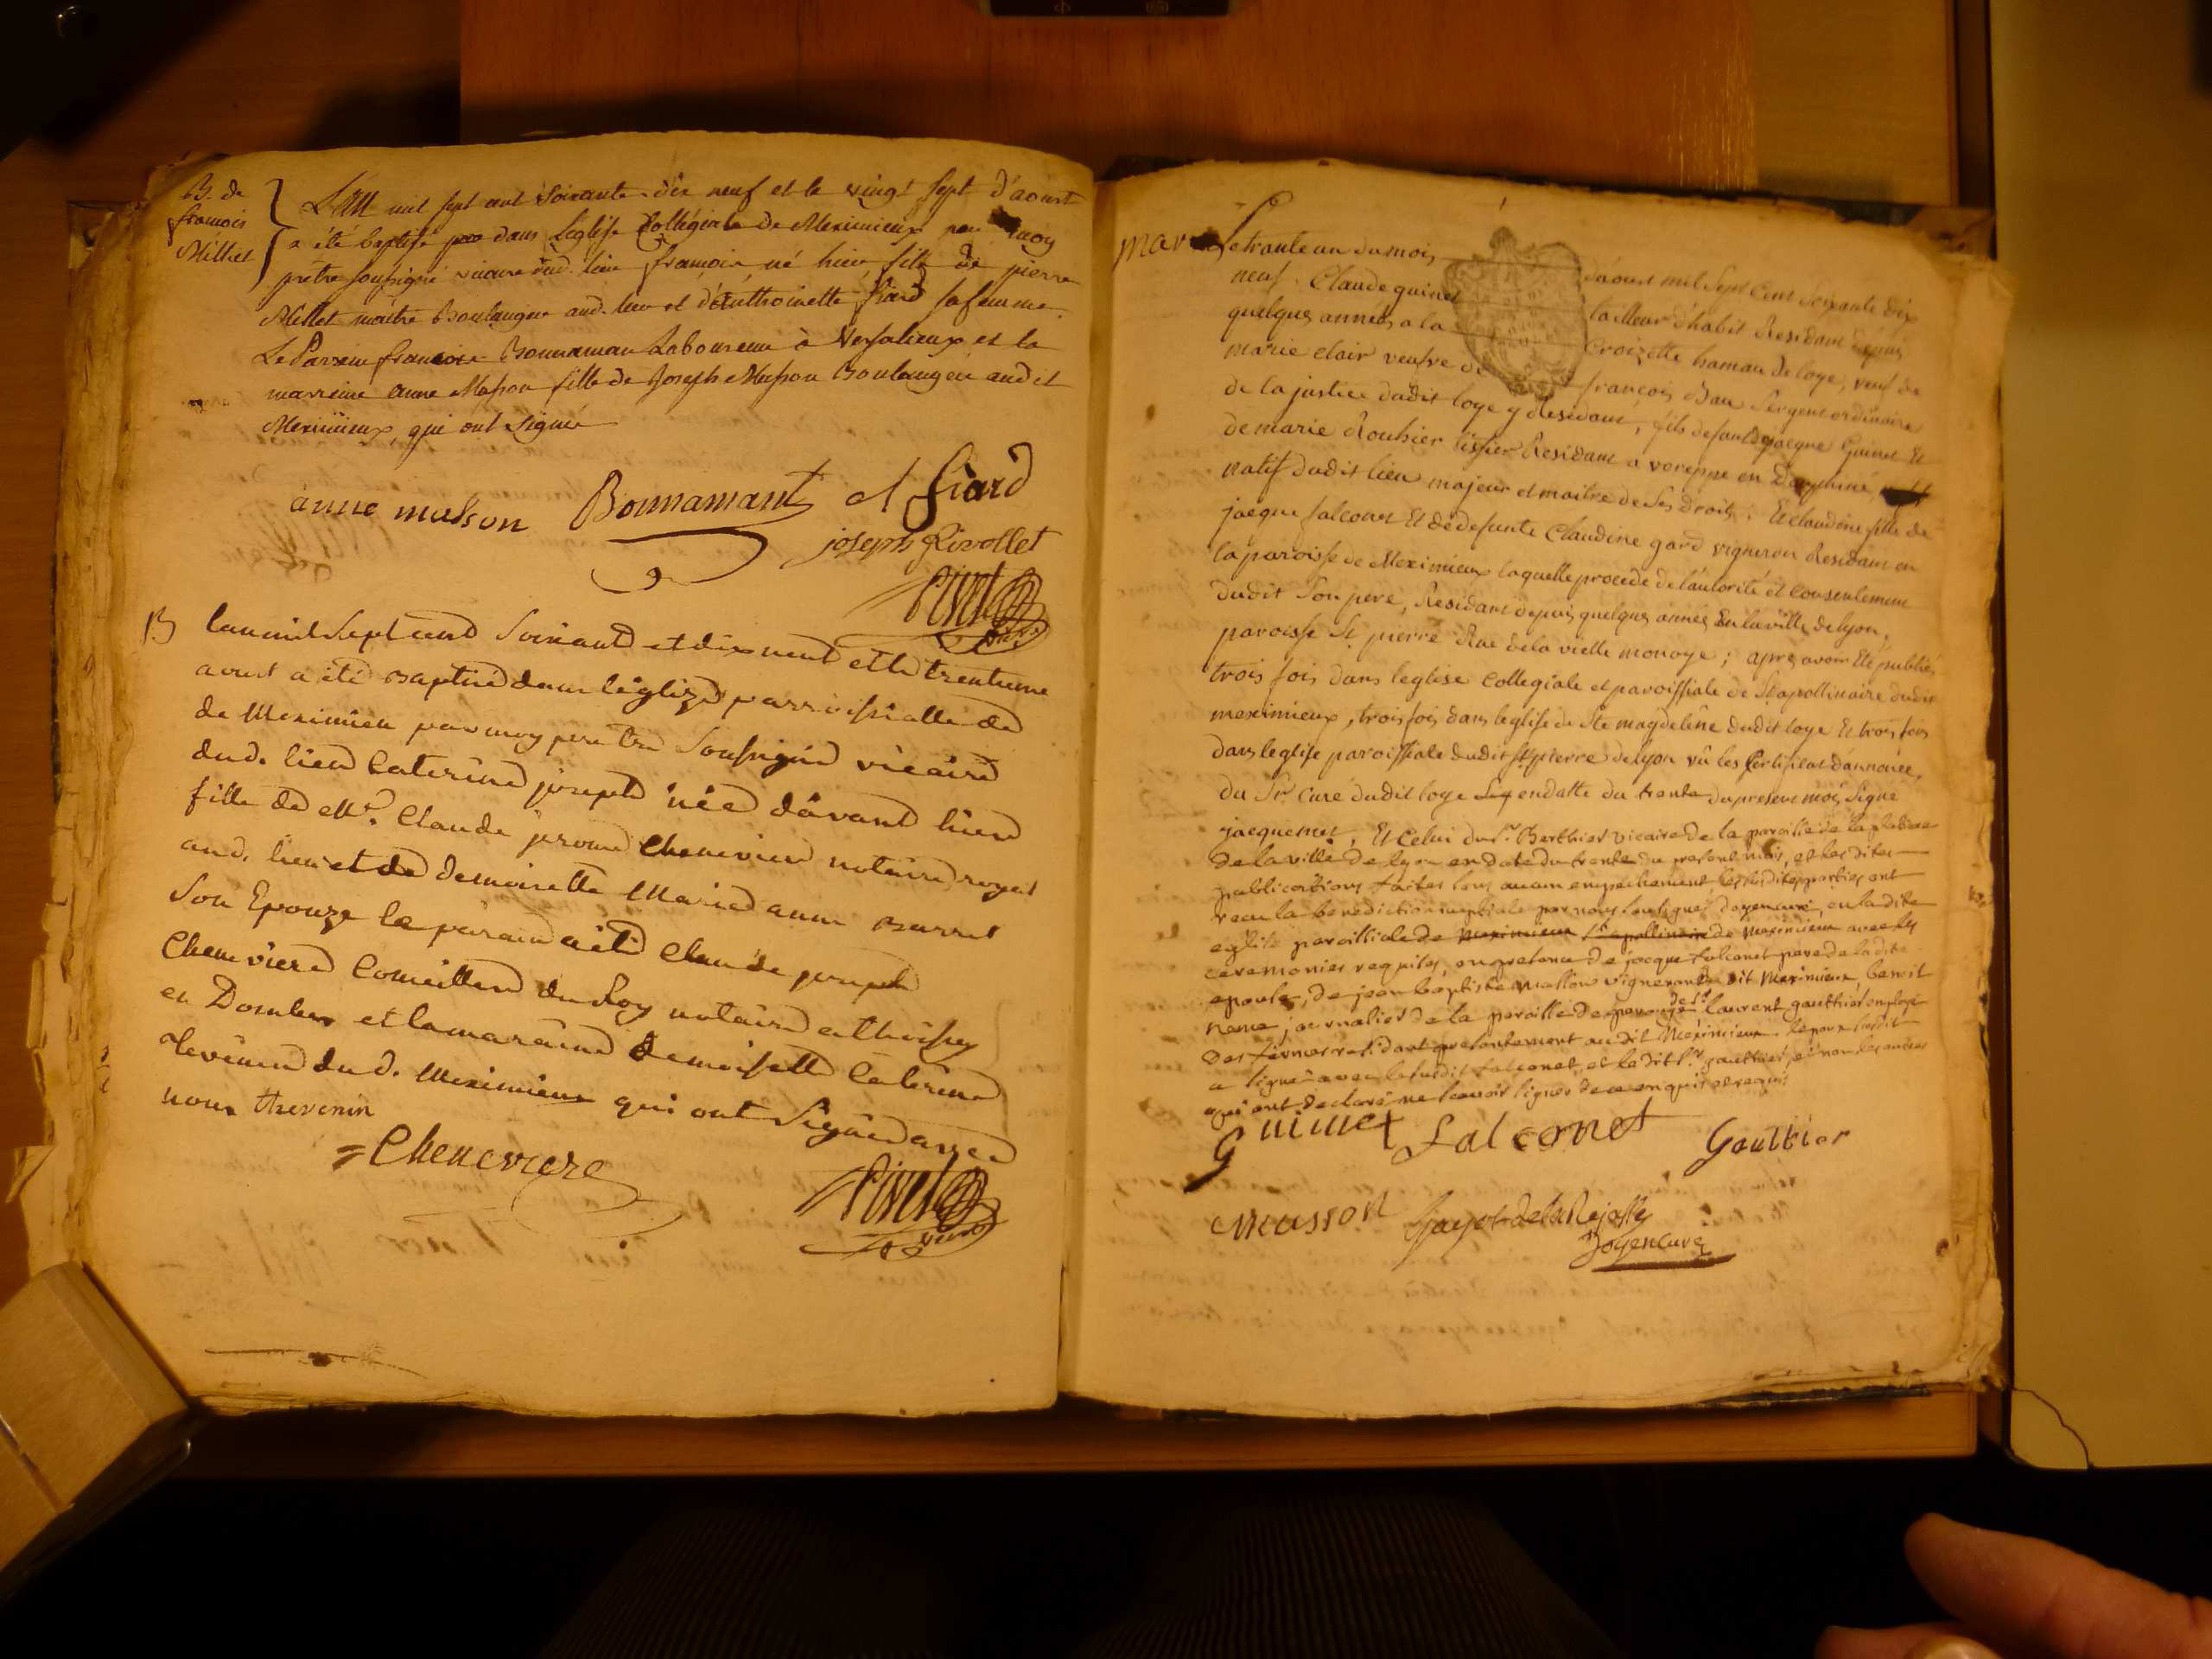 B. de
francois
Milliet
L'an mil sept cent soixante-dix neuf et le vingt sept d'aoust
a été baptisé dans l'eglise Collégiale de Meximieux par moy
prêtre soussigné vicaire dud. lieu francois né hier, fils de pierre
Millet maitre Boulanger aud. lieu et d'Anthoinette fiard sa femme.
Le Parrein francois Bonnaman Laboureur à Versalieux et la
marreine anne Masson fille de Joseph Masson Boulanger audit
Meximieux, qui ont signé
anne masson Bonnamant et fiard
joseph Rivollet
B
lan mil sept cent soixant et dix neuf et le trentieme
aoust a été baptisé dans léglize parroissialle de
de Meximieu par moy pretre soussigné vicaire
dud. lieu Caterine joseph née davant hier
fille de Mr. Claude jerome Chenevier notaire royal
aud. lieu et de demoiselle Marie anne barret
son Epouze le parain a été Claude joseph
Cheneviere Conseiller du Roy notaire a thoissey
en Dombes et la maraine demoiselle Caterine
Tevenin dud. Meximieux qui ont signé avec
nous thevenin
= Cheneviere
mar
Le trante un du mois d'aoust mil sept cent soixante dix
neuf. Claude guinet tailleur d'habit Residant depuis
quelques années a la Croizette hamau de loye, veuf de
marie clair veufve de françois Bau sergent ordinaire
de la justice dudit loye y Residant, fils de fant jacque Guinet Et
de marie Rouhier tissier Residant a voreppe en Dauphiné,
natif dudit lieu majeur et maitre de ses droits. Et claudine fille de
jacque falconet Et de defunte Claudine gard vigneron Residant en
la paroisse de Meximieux laquelle procede de l'autorité et consentement
dudit son pere, Residant depuis quelques années En la ville de lyon,
paroisse St. pierre Rue de la vielle monoye; apres avoir Eté publiés
trois fois dans leglise Collegiale et paroissiale de St apollinaire dudit
meximieux, trois fois dans leglise de Ste magdeleine dudit loye Et trois fois
dans leglise paroissiale dudit St pierre de lyon vû les Certificat d'annonces,
du Sr. Curé dudit loye en datte du trente du present mois signé
jacquemet, Et Celui du Sr. Berthier vicaire de la paroisse de la platiere
de la ville de lyon en date du trente du present mois, et les dites
publications faites sans aucun empechement, les susdites parties ont
recu la benediction nuptiale par nous soussigné doyen curé, en la dite
eglise paroissiale de Meximieux St apollinaire de Meximieux avec les
ceremonies requises, en presence de jacque falconet pere de la dite
epouse, de jean baptiste Masson vigneron du dit Meximieux, benoit
name journalier de la paroisse de perouge, de Sr laurent gauthier employé
des fermes residant presentement au dit Meximieux. lepoux susdit
a signé avec le susdit falconet et le dit Sr gauthier, et non les autres
qui ont declaré ne scavoir signer de ce enquis et requis
Guinet falconet Gaultier
Masson
Doyen Curé